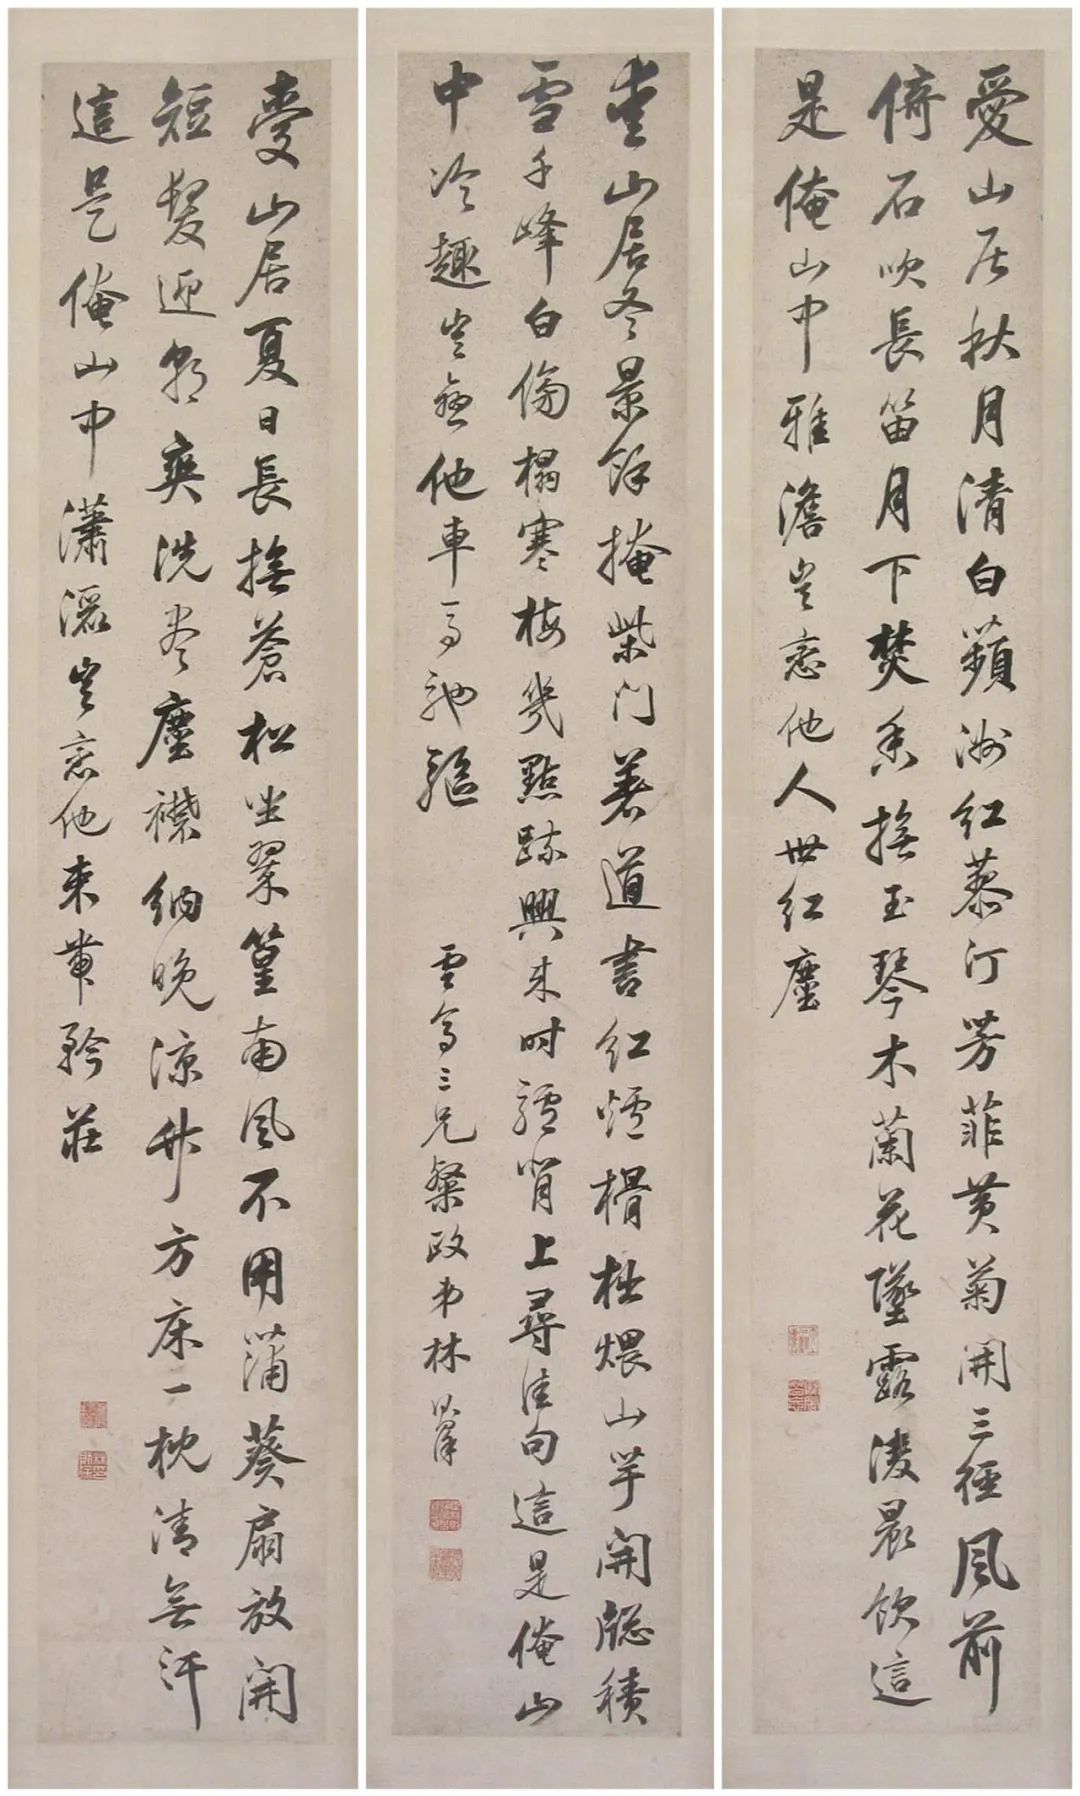 愛山居秋月清白蘋洲紅蓼汀芳菲黃菊開三徑風前
倚石吹長笛月下焚香撫玉琴木蘭花墜露凌晨飲這
是俺山中雅澹豈戀他人世紅塵
愛山居冬景餘掩柴門著道書紅爐榾柮煨山芋開牕積
雪千峰白傍榻寒梅幾點疎興來時驢背上尋佳句這是俺山
中冷趣豈戀他車馬馳驅
雪亭三兄粲政弟林則
愛山居夏日長撫蒼松坐翠篁南風不用蒲葵扇放開
短髮迎朝爽洗盡塵襟納晚涼竹方床一枕清無汗
這是俺山中瀟灑豈戀他束帶矜莊